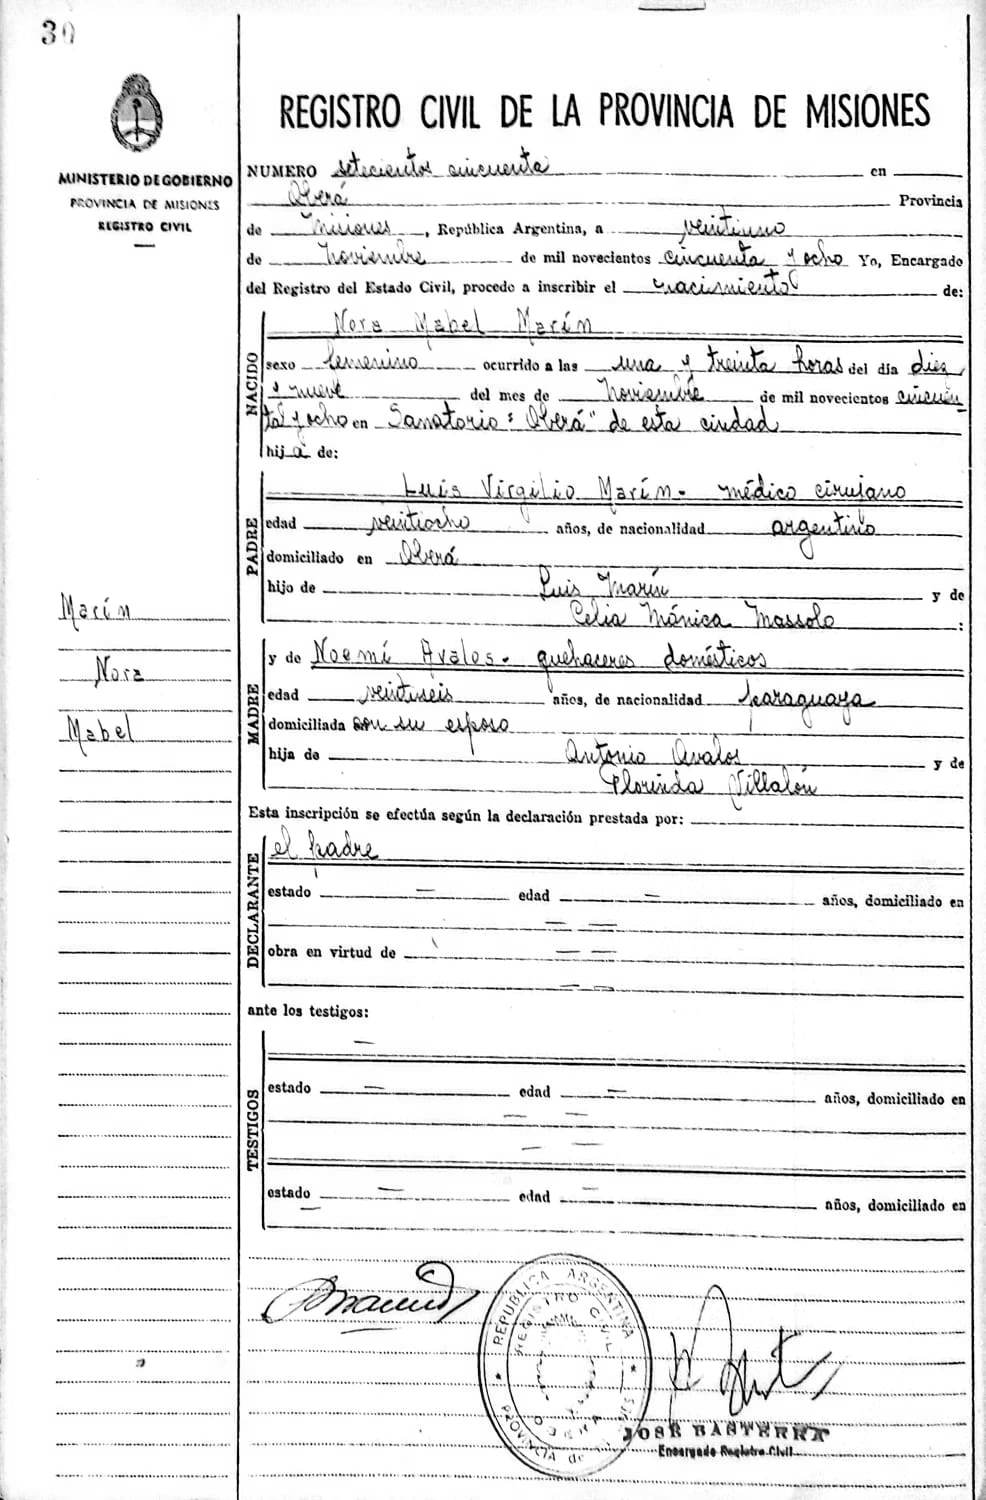 30
MINISTERIO DE GOBIERNO
PROVINCIA DE MISIONES
REGISTRO CIVIL
Marín
Nora
Mabel
REGISTRO CIVIL DE LA PROVINCIA DE MISIONES
NUMERO setecientos cincuenta en
Oberá Provincia
de Misiones, República Argentina, a veintiuno
de Noviembre de mil novecientos cincuenta y ocho Yo, Encargado
del Registro del Estado Civil, procedo a inscribir el nacimiento de:
NACIDO
Nora Mabel Marín
sexo femenino ocurrido a las una y treinta horas del día diez
y nueve del mes de Noviembre de mil novecientos cincuen
ta y ocho en Sanatorio "Oberá" de esta ciudad
hija de:
PADRE
Luis Virgilio Marín. médico cirujano
edad veintiocho años, de nacionalidad argentino
domiciliado en Oberá
hijo de Luis Marín y de
Celia Mónica Massolo :
MADRE
y de Noemí Avalos. quehaceres domésticos
edad veintiseis años, de nacionalidad paraguaya
domiciliada con su esposo
hija de Antonio Avalos y de
Florinda Villalón
Esta inscripción se efectúa según la declaración prestada por:
DECLARANTE
el padre
estado = edad = años, domiciliado en
= =
obra en virtud de = =
ante los testigos:
TESTIGOS
estado = edad = años, domiciliado en
estado = edad = años, domiciliado en
REPUBLICA ARGENTINA
REGISTRO CIVIL
PROVINCIA de
JOSE BASTERRA
Encargado Registro Civil